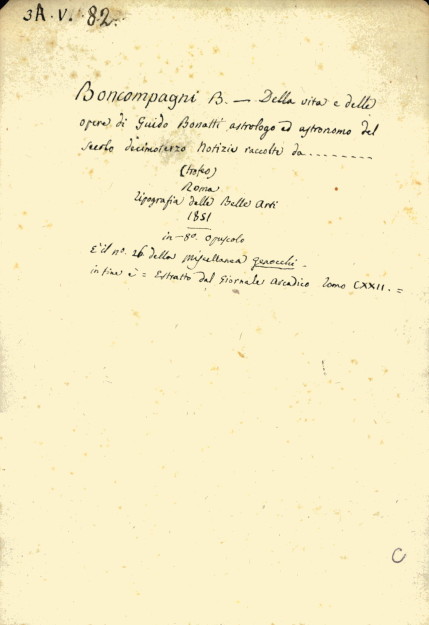 3A. V. 82.
Boncompagni B. — Della vita e delle
opere di Guido Bonatti astrologo ed astronomo del
secolo decimoterzo Notizie raccolte da ........
(trofeo)
Roma
Tipografia delle Belle Arti
1851
in-8º. Opuscolo
E' il nº. 26 della Miscellanea Genocchi.
in fine è = Estratto dal Giornale Arcadico Tomo CXXII. =
C